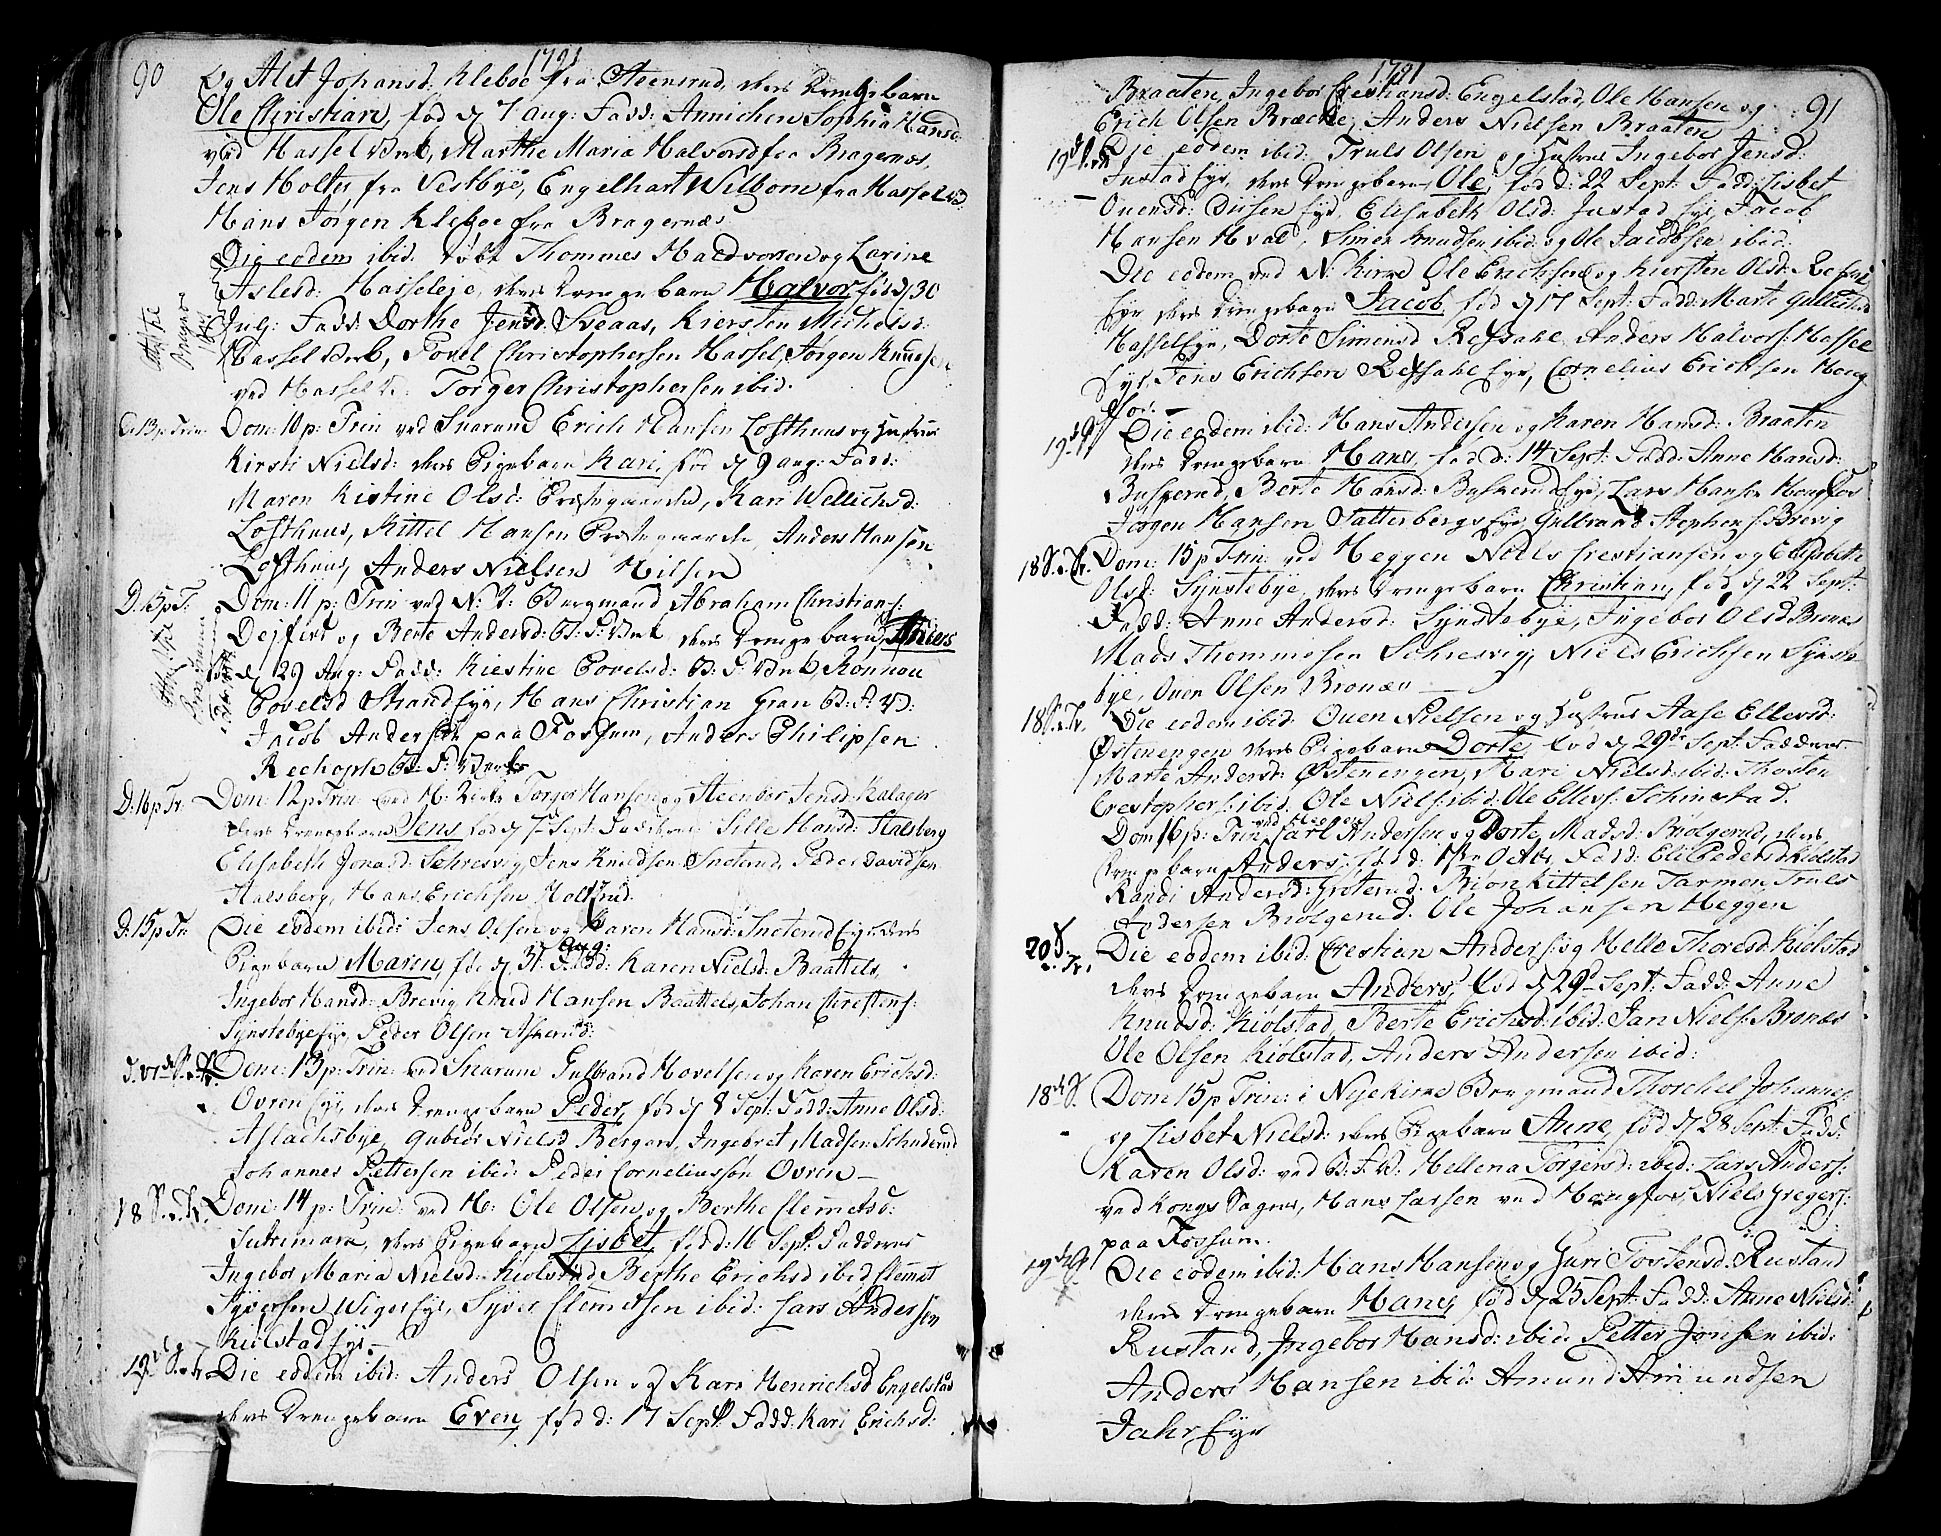 90
1791
Og Alet Johansd: Kleboe fra Steensrud, deres Drengebarn
Ole Christian, fød d 7 aug: Fadd: Annichen Sophia Hansd:
ved Hassel Verk, Marthe Maria Halvorsd fra Bragernes,
Jens Holter fra Vestbye, Engelhart Wilbom fra Hassel
Hans Jørgen Kleboe fra Bragernæs
Die eodem ibid. døbt Thommes Haldvorsen og Larine
Aslesd: Hasseleje, deres Drengebarn Halvor fød d 30
Jul: Fadd: Dorthe Jensd: Sveaas, Kiersten Michelsd:
Hassel Verk, Povel Christophersen Hassel, Jørgen Knudsen
ved Hassel V: Torger Christophersen ibid.
D. 13 p. Trin: Dom: 10 p: Trin ved Snarum Erich Hansen Lofthuus og Hustrue
Kirsti Nielsd: deres Pigebarn Kari, fød d 9 aug: Fadd:
Maren Kistine Olsd: Præstegaarden, Kari Wellichsd:
Lofthuus, Kittel Hansen Præstegaarden, Anders Hansen
Lofthuus, Anders Nielsen Hilsen
D. 15 p T: Dom: 11 p: Trin ved N: K: Bergmand Abraham Christians:
og Berte Andersd: B: F: Verk deres Drengebarn
fød d 29 Aug: Fadd: Kiestine Povelsd: B: F: Verk, Ronnau
Povelsd Strand Eye, Hans Christian Gran B: F: V:
Jacob Andersen paa Fossum, Anders Philipsen
B: F: Verk
D. 16 p Tr. Dom: 12 p Trin: ved H: Kirke Torger Hansen og Steenbor Jensd: Kalager
deres Drengebarn Jens fød d Sept: Fadderne Sille Hansd: Stalsberg
Elisabeth Jonasd: Schresvig, Jens Knudsen Snetrud, Peder Davidsen
Stalsberg, Hans Erichsen Holtrud.
D. 15 p Tr. Die eodem ibid: Jens Olsen og Karen Hansd: Snetrud Eye deres
Pigebarn Maren, fød d 31 Aug: Fadd: Karen Nielsd: Baattels,
Ingebor Hansd: Brevig Knud Hansen Baattels, Johan Chrestens:
Synstebye eye, Peder Olsen Askerud:
Dom: 13 p: Trin: ved Snarum Gulbrand Hovelsen og Karen Erichsd:
Ovren Eye, deres Drengebarn Peder, fød d 8 Sept: Fadd: Anne Olsd:
Aslachsbye, Gubiør Nielsd Bergan, Ingebret Madsen Schuderud
Johannes Pettersen ibid: Peder Corneliussen Ovren —
18 S. Tr. Dom: 14 p: Trin: ved H: Ole Olsen og Berthe Clemetsd:
deres Pigebarn Lisbet, fød d: 16 Sept: Fadderne
Ingebor Maria Nielsd: Kiolstad, Berthe Erichsd ibid Clemet
Syversen Wiger Eye, Syver Clemetsen ibid: Lars Andersen
Kiolstad Eye. —
19 S. Tr. Die eodem ibid: Anders Olsen og Kari Henrichsd Engelstad
deres Drengebarn Even, fød d: 17 Sept: Fadd: Kari Erichsd:
1791
91
Braaten, Ingebor Crestiansd: Engelstad, Ole Hansen og
Erich Olsen Bræcke, Anders Nielsen Braaten
Die eodem ibid: Truls Olsen og Hustrue Ingebor Jensd:
Justad Eye, deres Drengebarn Ole, fød d: 22 Sept: Fadd: Lisbet
Ouensd: Diisen Eye, Elisabeth Olsd: Justad Eye, Jacob
Hansen Hval, Simen Knudsen ibid: og Ole Jacobsen ibid:
Die eodem ved N: Kirke Ole Erichsen og Kiersten Olsd:
Eye deres Drengebarn Jacob fød d 17 Sept: Fadd: Marte
Hassel Eye, Dorte Simensd Anders Halvors: Hassel
Eye, Jens Erichsen Eye, Cornelius Erichsen Houg
for. —
Die eodem ibid: Hans Andersen og Karen Hansd: Braaten
deres Drengebarn Hans, fød d: 14 Sept: Fadd: Anne Hansd:
Buskerud, Berte Hansd: Buskerud Eye, Lars Hansen Hougfos
Jørgen Hansen Satterbergs Eye, Gulbrand Stephens: Brevig
18 S. Tr. Dom: 15 p Trin: ved Heggen Niels Crestiansen og Elisabeth
Olsd: Synstebye, deres Drengebarn Christian, fød d 22 Sept:
Fadd: Anne Andersd: Syndtebye, Ingebor Olsd Bronæs
Mads Thommesen Schresvig, Niels Erichsen Synste-
bye, Ouen Olsen Bronæs —
18 S. Tr. Die eodem ibid: Ouen Nielsen og Hustrue Aase Ellevsd:
Østenengen deres Pigebarn Dorte, fød d 29de Sept: Fadderne
Marte Andersd: Østenengen, Mari Nielsd: ibid: Thosten
Crestophers: ibid, Ole Niels: ibid: Ole Ellevs: Schinstad.
Dom 16 p: Trin ved Heggen Carl Andersen og Dorte Madsd: Biølgerud, deres
Drengebarn Anders, fød d: Octbr, Fadd: Eli Pedersd Kiolstad
Randi Andersd: Grøterud. Biørn Kittelsen Tarmon, Truls
Andersen Biølgerud. Ole Johansen Heggen
20 S. Tr. Die eodem ibid: Crestian Anders: og Helle Thoresd: Kiolstad
deres Drengebarn Anders, fød d 29 Sept: Fadd: Anne
Knudsd: Kiolstad, Berte Erichsd: ibid: Jan Niels: Bronæs
Ole Olsen Kiolstad, Anders Andersen ibid:
18de S. Dom 15 p Trin: i Nyekirke Bergmand Thorchel Johannes:
og Lisbet Nielsd: deres Pigebarn Anne, fød d 28 Sept: Fadd:
Karen Olsd: ved B: F: V: Hellena Torgersd: ibid: Lars Anders:
ved Kongs Sagne, Hans Larsen ved Hougfos, Niels Gregers:
paa Fossum.
Die eodem ibid: Hans Hansen og Guri Tostensd: Rustand
deres Drengebarn Hans, fød d 25 Sept: Fadd: Anne Nielsd:
Rustand, Ingebor Hansd: ibid: Petter Jonsen ibid:
Anders Hansen ibid: Amund Amundsen
Jahr Eye